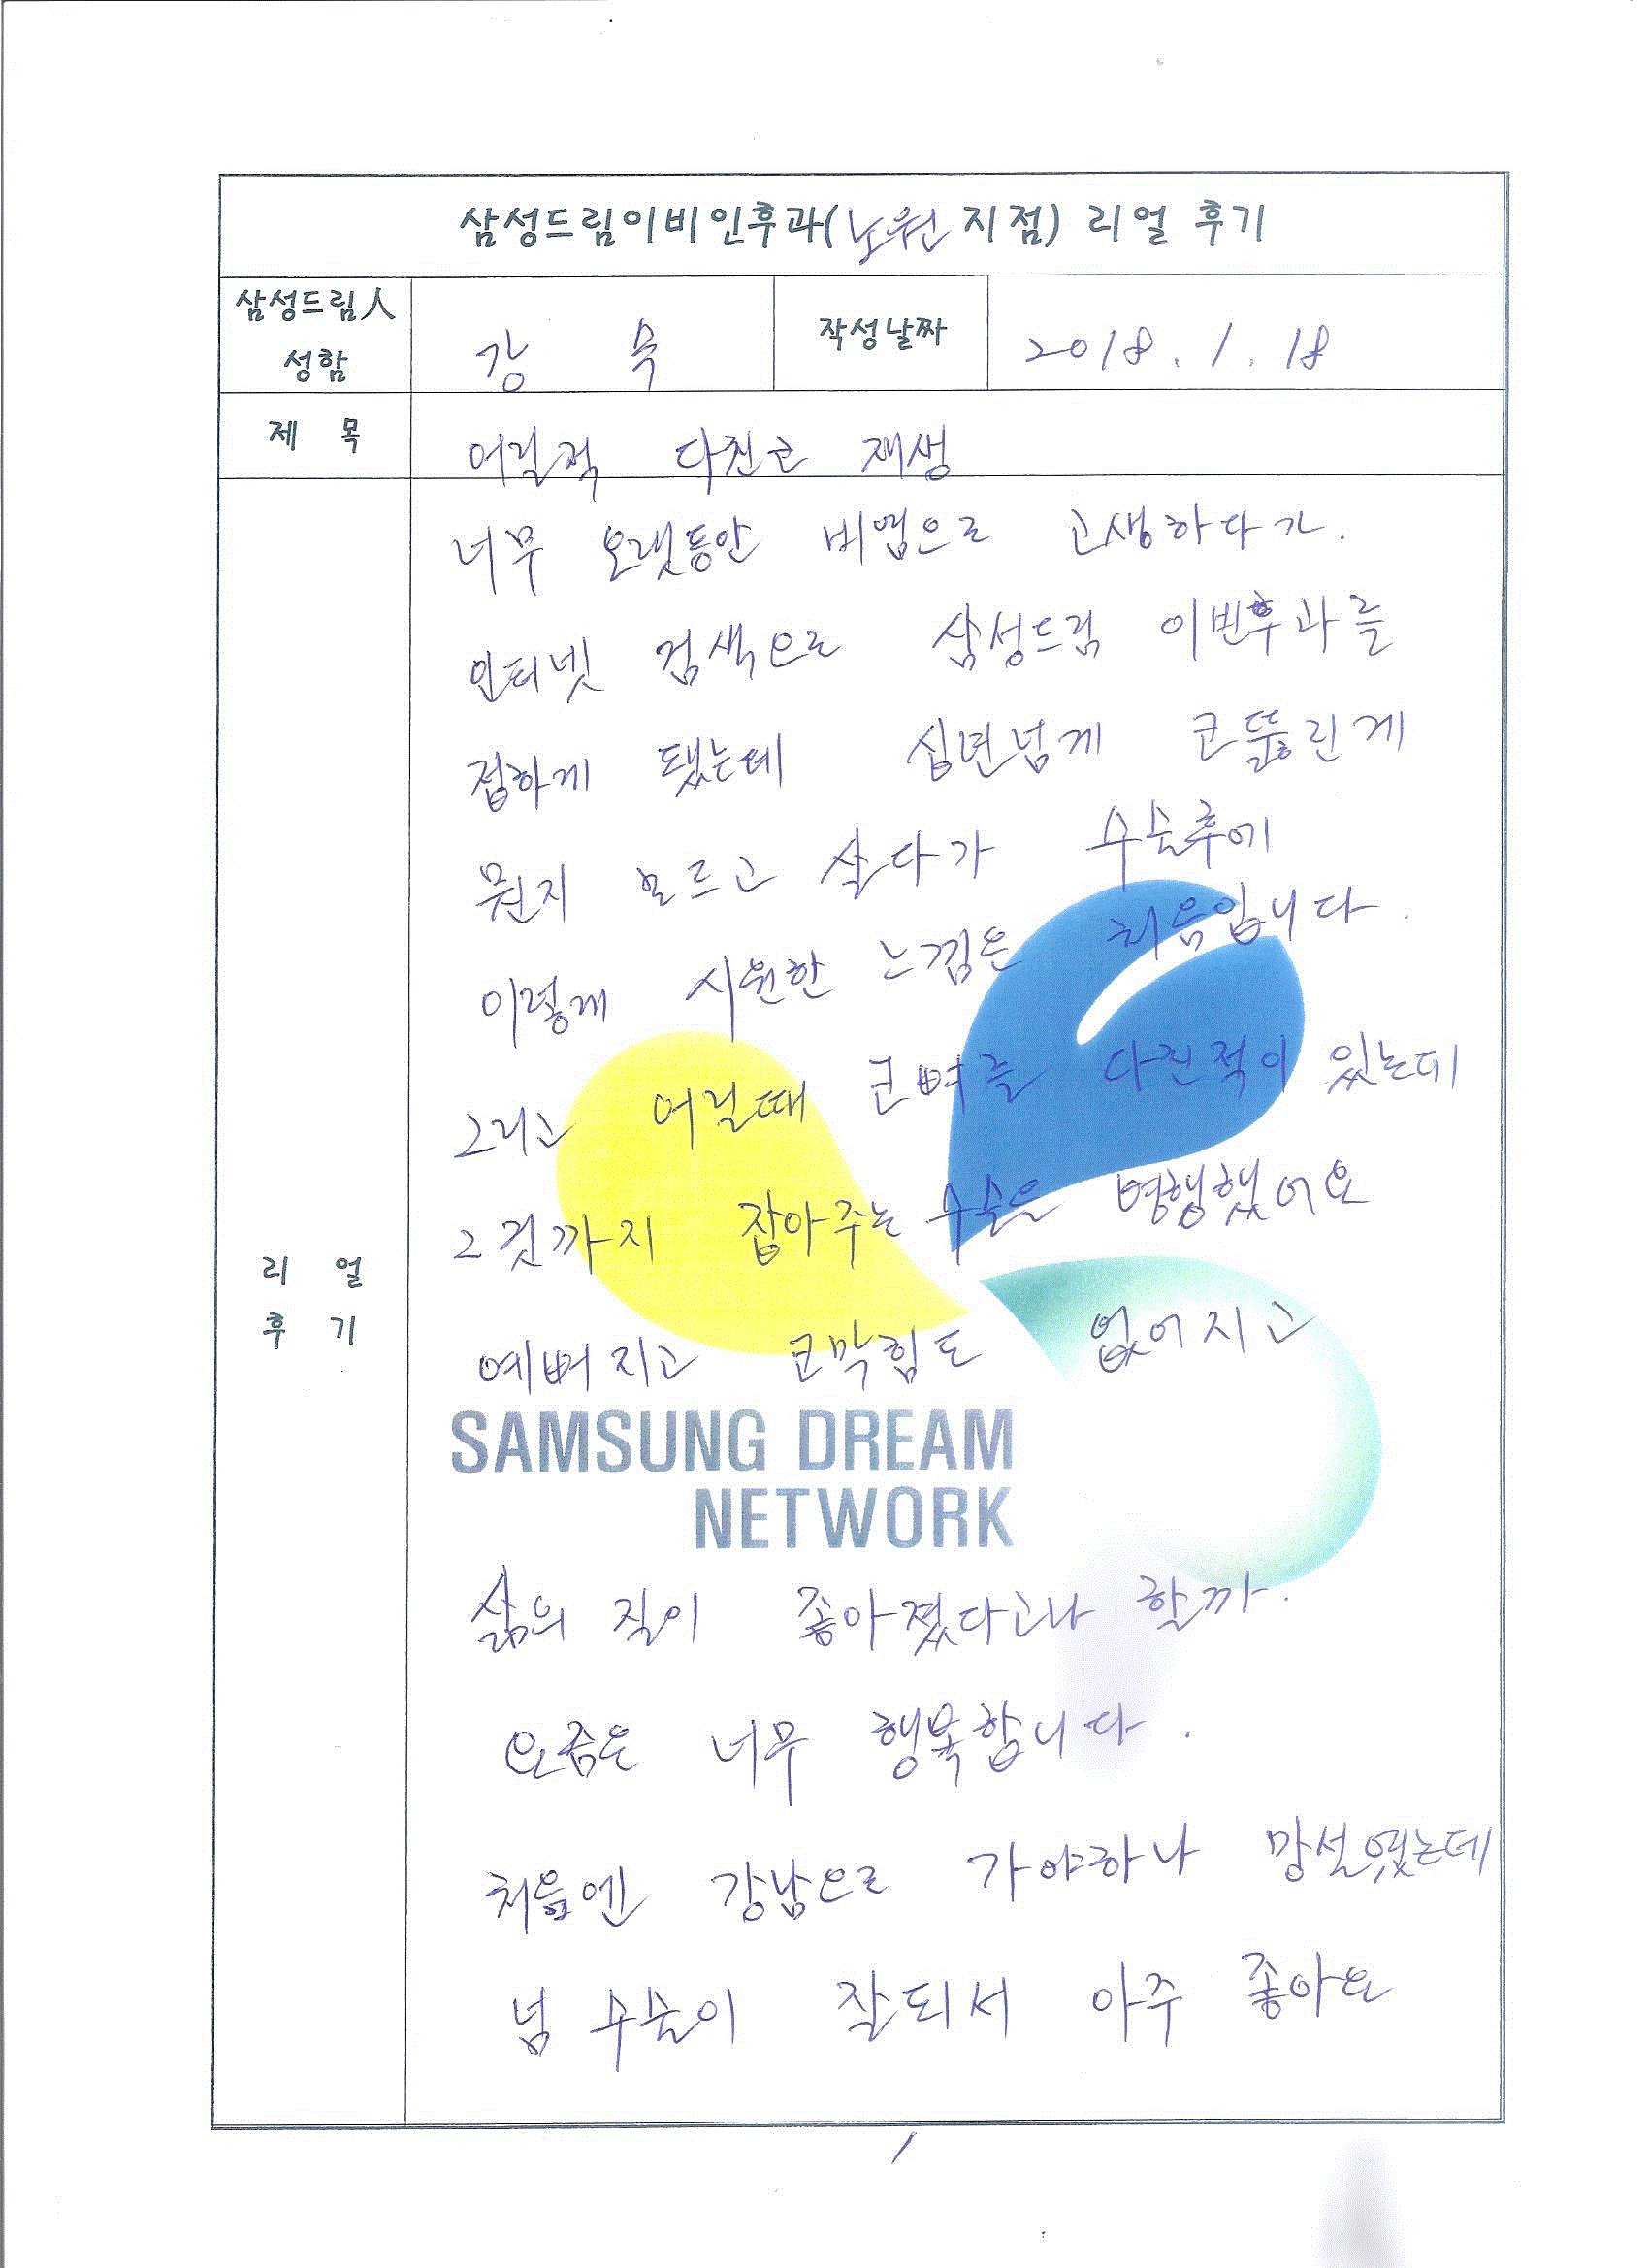 삼성드림이비인후과(노원 지점) 리얼 후기
삼성드림人 성함
강 욱
작성날짜
2018. 1. 18
제 목
어릴적 다친코 재생
리 얼 후 기
너무 오랫동안 비염으로 고생하다가.
인터넷 검색으로 삼성드림 이빈후과를
접하게 됐는데 십년넘게 코뚫린게
뭔지 모르고 살다가 수술후에
이렇게 시원한 느낌은 처음입니다.
그리고 어릴때 코뼈를 다친적이 있는데
그것까지 잡아주는 수술을 병행했어요
예뻐지고 코막힘도 없어지고
SAMSUNG DREAM
NETWORK
삶의 질이 좋아졌다고나 할까.
요즘은 너무 행복합니다.
처음엔 강남으로 가야하나 망설였는데
넘 수술이 잘되서 아주 좋아요